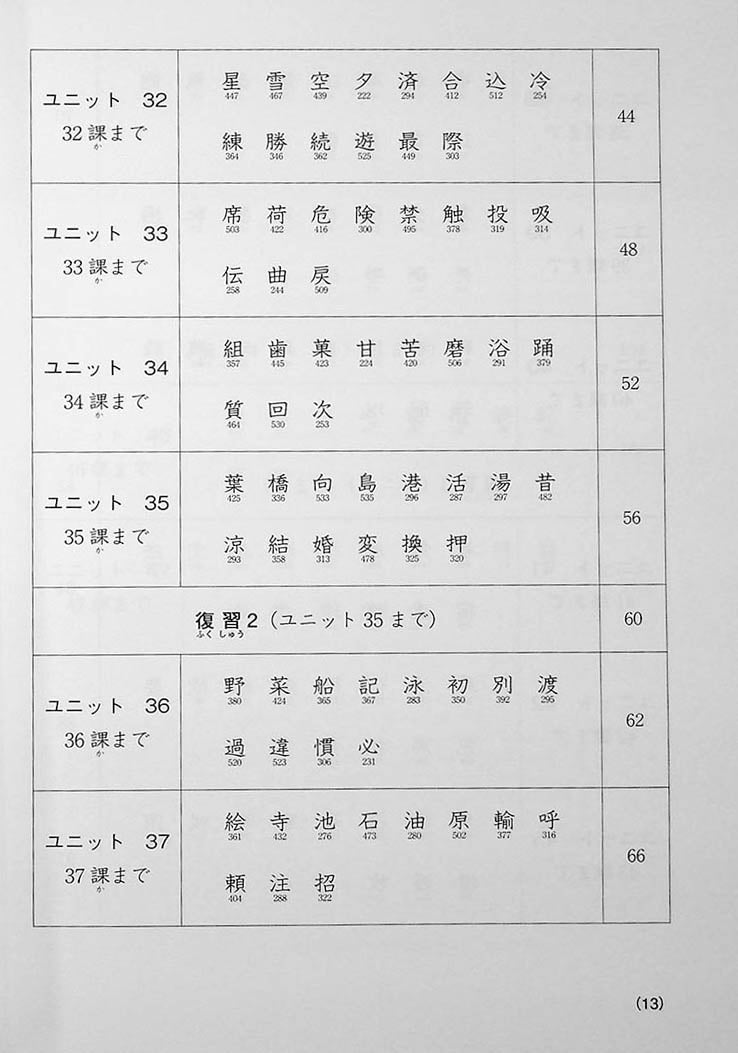 ユニット 32
32課まで
か
星 雪 空 夕 済 合 込 冷
447 467 439 222 294 412 512 254
練 勝 続 遊 最 際
364 346 362 525 449 303
44
ユニット 33
33課まで
か
席 荷 危 険 禁 触 投 吸
503 422 416 300 495 378 319 314
伝 曲 戻
258 244 509
48
ユニット 34
34課まで
か
組 歯 菓 甘 苦 磨 浴 踊
357 445 423 224 420 506 291 379
質 回 次
464 530 253
52
ユニット 35
35課まで
か
葉 橋 向 島 港 活 湯 昔
425 336 533 535 296 287 297 482
涼 結 婚 変 換 押
293 358 313 478 325 320
56
復習2（ユニット 35まで）
ふくしゅう
60
ユニット 36
36課まで
か
野 菜 船 記 泳 初 別 渡
380 424 365 367 283 350 392 295
過 違 慣 必
520 523 306 231
62
ユニット 37
37課まで
か
絵 寺 池 石 油 原 輸 呼
361 432 276 473 280 502 377 316
頼 注 招
404 288 322
66
(13)